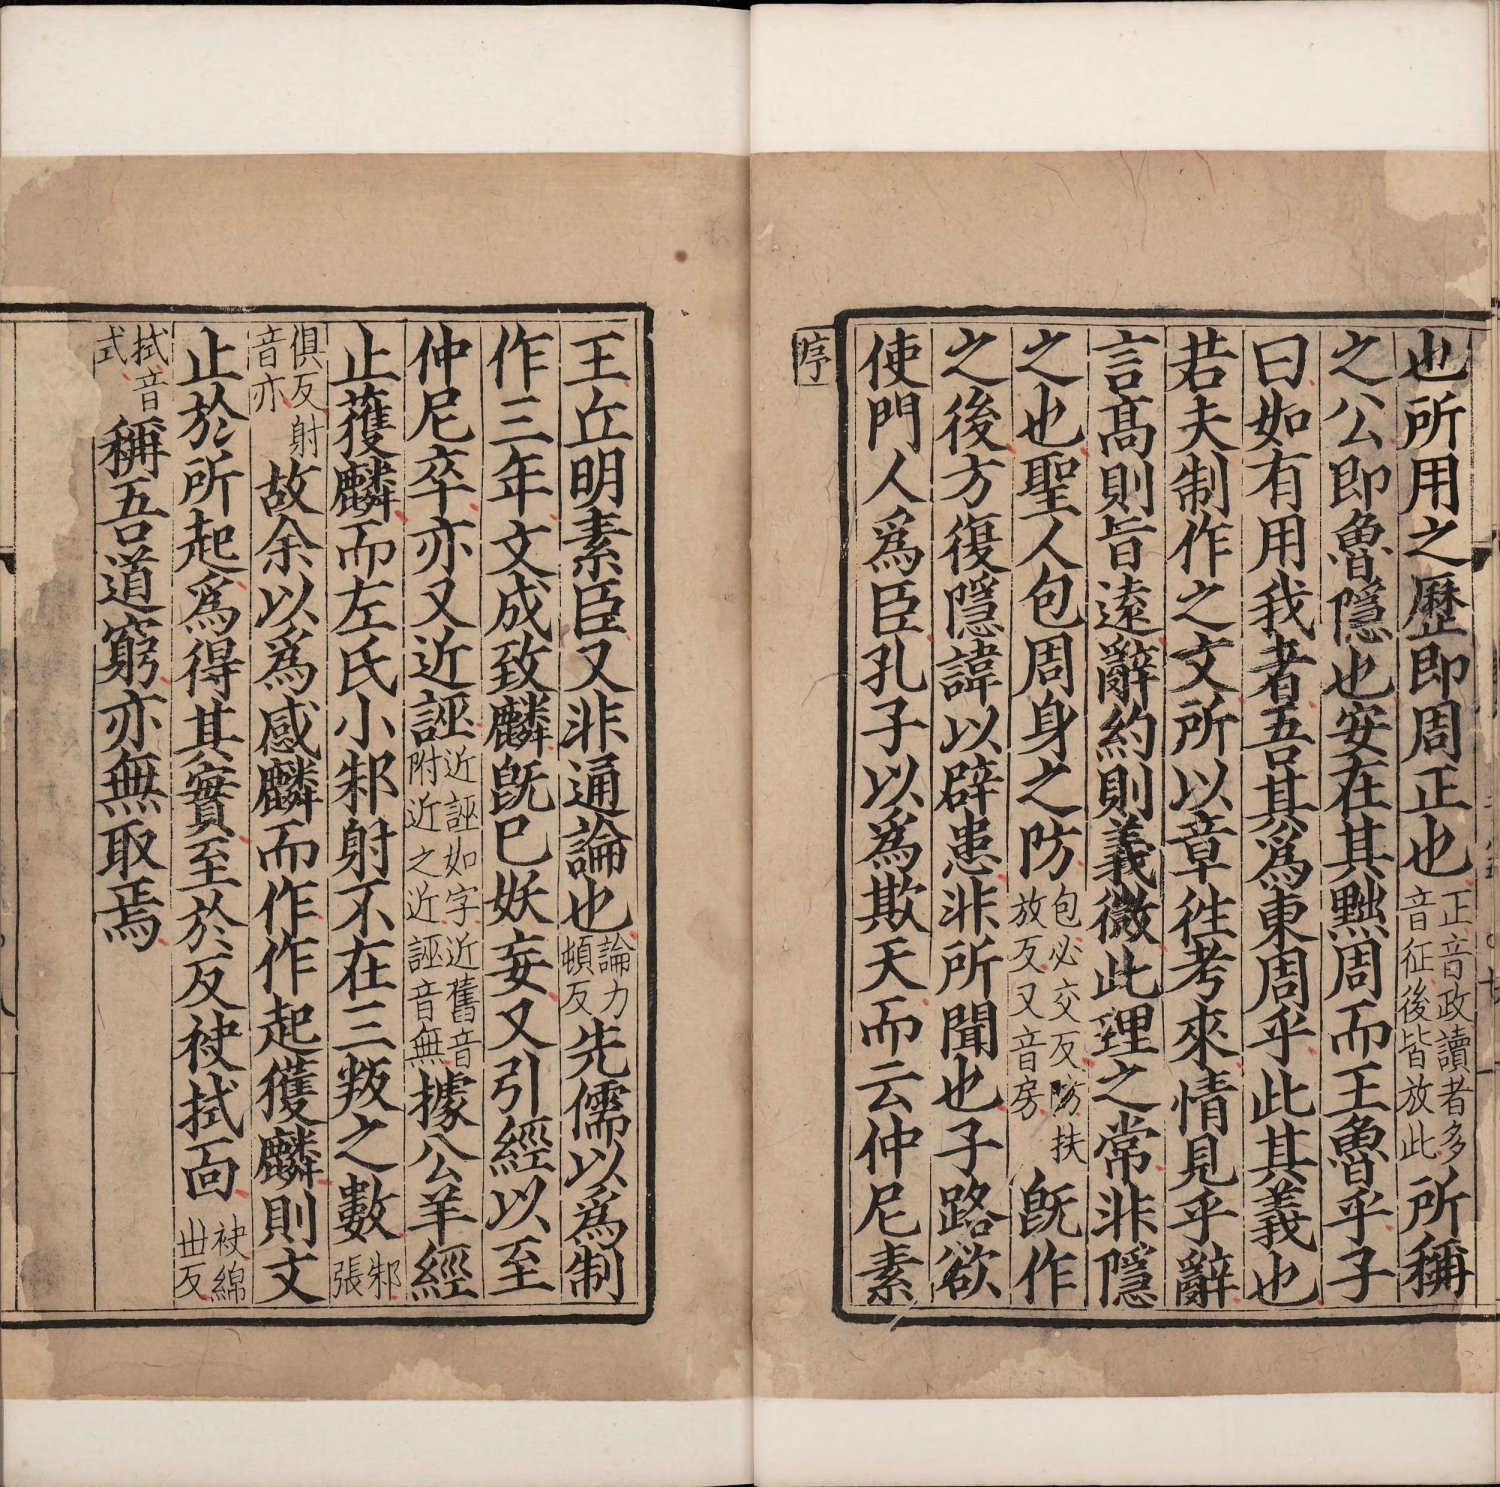 也所用之歷即周正也正音政讀者多音征後皆放此所稱
之公即魯隱也安在其黜周而王魯乎子
曰如有用我者吾其爲東周乎此其義也
若夫制作之文所以章徃考來情見乎辭
言髙則旨遠辭約則義微此理之常非隱
之也聖人包周身之防包必交反防扶放反又音房旣作
之後方復隱諱以辟患非所聞也子路欲
使門人爲臣孔子以爲欺天而云仲尼素
序
王丘明素臣又非通論也論力頓反先儒以爲制
作三年文成致麟旣已妖妄又引經以至
仲尼卒亦又近誣近誣如字近舊音附近之近誣音無據公羊經
止獲麟而左氏小邾射不在三叛之數邾張
俱反射音亦故余以爲感麟而作作起獲麟則文
止於所起爲得其實至於反袂拭面袂綿世反
拭音式稱吾道窮亦無取焉